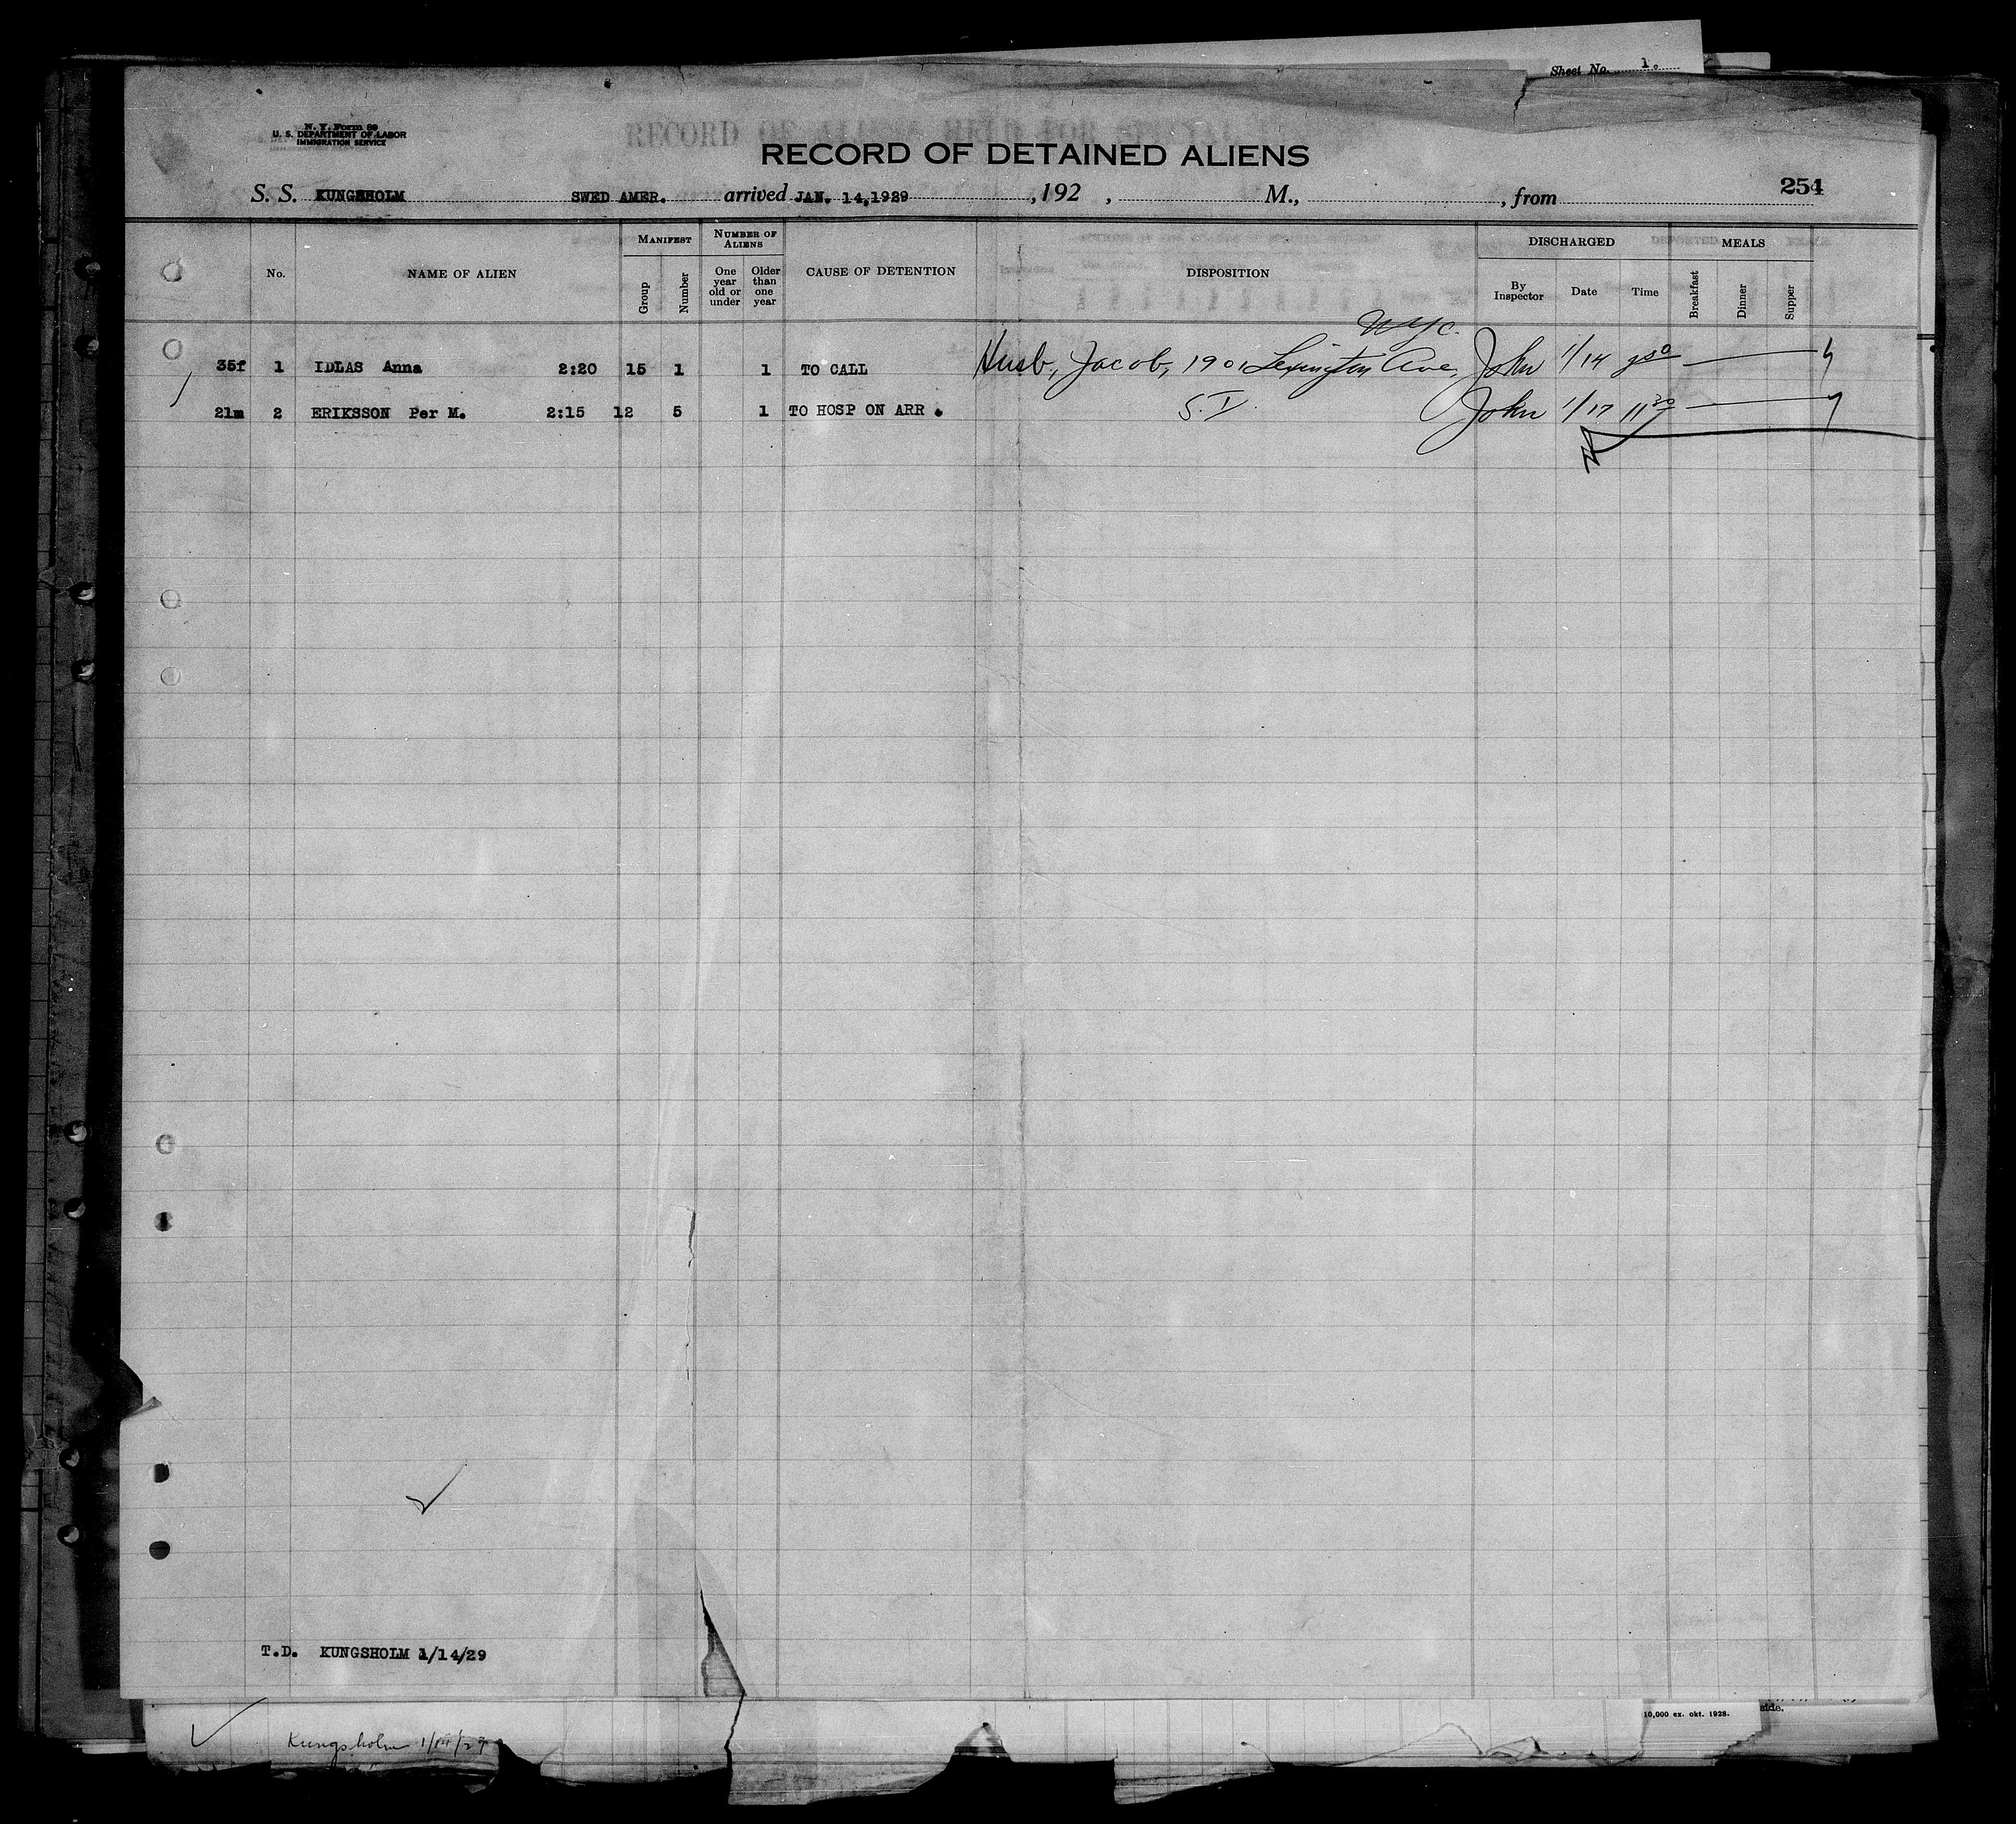 Sheet No. 1.
N. Y. Form 89
U. S. DEPARTMENT OF LABOR
IMMIGRATION SERVICE
RECORD OF DETAINED ALIENS
S. S. KUNGSHOLM SWED AMER. arrived JAN. 14,1929 , 192 , M., , from 254
No. NAME OF ALIEN MANIFEST Group Number NUMBER OF ALIENS One year old or under Older than one year CAUSE OF DETENTION DISPOSITION DISCHARGED By Inspector Date Time MEALS Breakfast Dinner Supper
NYC.
35f 1 IDLAS Anna 2:20 15 1 1 TO CALL Husb, Jacob, 1901 Lexington Ave, John 1/14
21m 2 ERIKSSON Per M. 2:15 12 5 1 TO HOSP ON ARR. S.I. John 1/17 11 30
T.D. KUNGSHOLM 1/14/29
Kungsholm 1/14/29
10,000 ex. okt. 1928.
side.